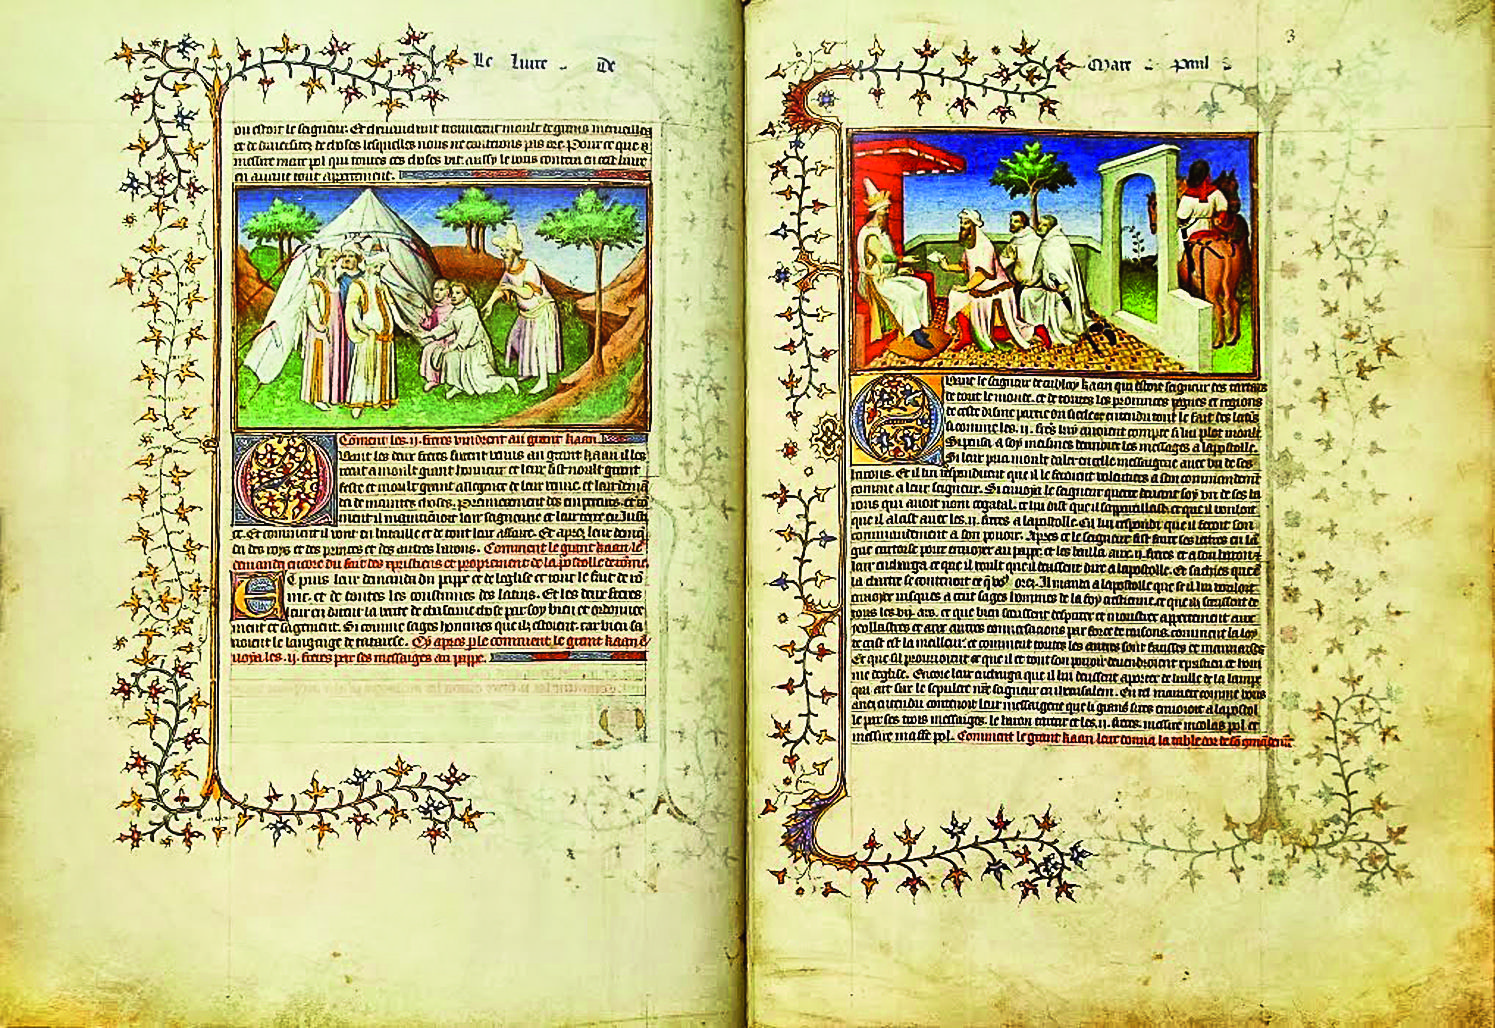 Le livre . De
ou estoit le seigneur. Et devant lui trouverent moult de grans merveilles
et de diversitez de choses lesquelles nous ne conterons pas ore. Pour ce que
messire marc pol qui toutes ces choses vit. aussy le vous contera en cest livre
en avant tout appertement.
Coment les .ij. freres vindrent au grant kaan
Quant les deux freres furent venus au grant kaan il les
recut a moult grant honneur et leur fist moult grant
feste et moult grant allegrece de leur venue. et leur
de maintes choses. Premierement des empereurs. et
ment il maintenoit leur seigneurie et leur terre en Jus
ce. Et comment il vont en bataille et de tout leur affaire. Et apres leur
da des roys et des princes et des autres barons. Comment le grant kaan le
demanda encore du fait des crestiens et proprement de la postolle de romme.
Et puis leur demanda du pappe et de leglise et tout le fait de ro
me. et de toutes les coustumes des latins. Et les deux freres
leur en dirent la verite de chascune chose par soy bien et ordonnee
ment et sagement. Si comme sages hommes que ilz estoient. car bien sa
voient le langaige de tartarie. Cy apres parle comment le grant kaan
voya les .ij. freres par ses messages au pappe.
3
Marc . Paul
Quant le seigneur de cublay kaan qui estoit seigneur des tartars
de tout le monde. et de toutes les provinces regnes et regions
de ceste disme partie ou siecle et entendu tout le fait des latins
si comme les .ij. freres luy avoient compte si lui plot moult
Si pensa a soy maismes denvoier les messages a lapostolle.
Si leur pria moult daler en celle messagerie avec un de ses
barons. Et il lui respondirent que il le feroient voulentiers a son commandement
comme a leur seigneur. Si envoya le seigneur querre devant soy un de ses ba
rons qui avoit nom cogatal. et lui dist que il sappareillast. et que il vouloit
que il alast avec les .ij. freres a lapostolle. Cil lui respondi que il feroit son
commandement a son pouoir. Apres ce le seigneur fist faire ses lettres en la
gue tartoise pour envoier au pappe. et les bailla aux .ij. freres et a son baron
leur encharga ce que il voult que il deussent dire a lapostolle. Et sachies que
la chartre se contenoit ce que vous orez. Il manda a lapostolle que se il lui vouloit
envoier jusques a cent sages hommes de la foy crestienne. et que ilz seussent de
tous les .vij. ars. et que bien seussent desputer et monstrer appertement aux
ydollastres et aux autres conversacions par force de raisons. comment la loy
de crist est la meilleur. et comment toutes les autres sont faulses et mauvaises
Et que sil prouvoient ce que il et tout son pouoir devendroient crestien et hom
me deglise. Encore leur encharga que il lui deussent aporter de luille de la lampe
qui art sur le sepulcre nostre seigneur en iherusalem. En tel maniere comme vous
avez entendu contenoit leur messagerie que li grans sires envoioit a lapostol
le par ses trois messages. le baron tartar et les .ij. freres. messire nicolas pol et
messire maffe pol. Comment le grant kaan leur donna la table dor de son commandement